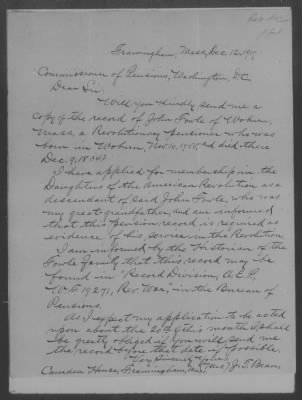 Framingham, Mass, Dec 12, 1917
Commissioner of Pensions, Washington, D.C.
Dear Sir:
Will you kindly send me a
copy of the record of John Fowle of Woburn,
Mass, a Revolutionary Pensioner who was
born in Woburn, Nov. 10, 1755 and died there
Dec. 9, 1834?
I have applied for membership in the
Daughters of the American Revolution as a
descendant of said John Fowle, who was
my great-grandfather, and am informed
that this Pension record is required as
evidence of his service in the Revolution.
I am informed by the Historian of the
Fowle Family that this record may be
found in "Record Division, A.E.P.,
W.F. 19271, Rev. War," in the Bureau of
Pensions.
As I expect my application to be acted
upon about the 20th of this month I shall
be greatly obliged if you will send me
the record before that date if possible.
Very Sincerely Yours
(Mrs) J. F. Beam
Camden House, Framingham, Mass.